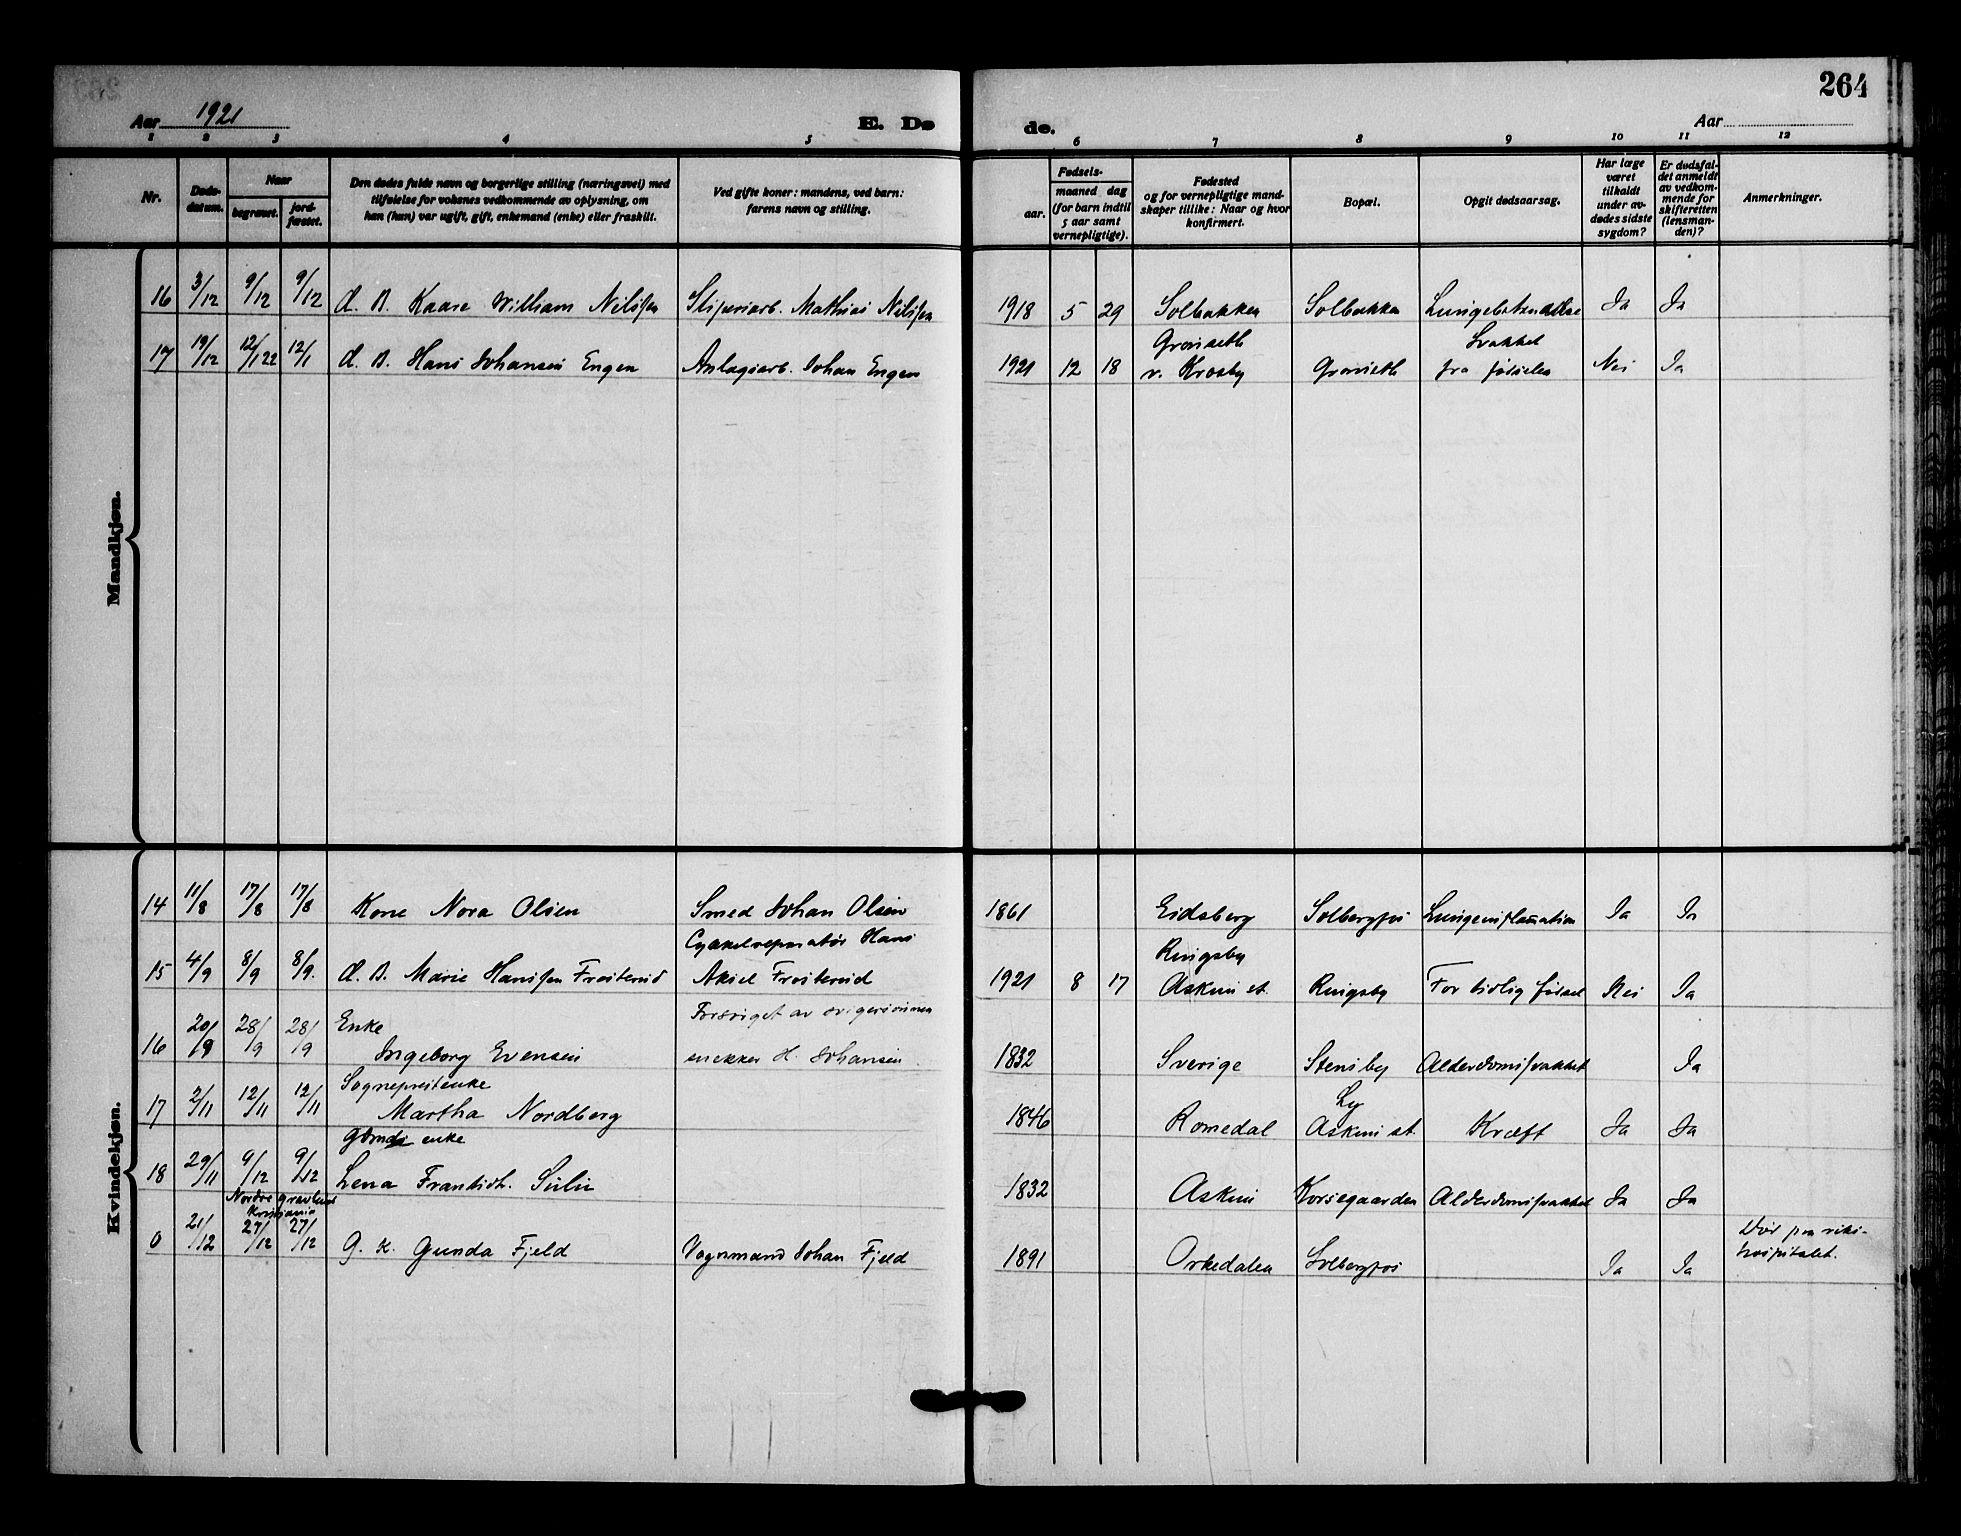 264
Aar 1921
E. Dø
de.
Aar
1 2 3 4 5 6 7 8 9 10 11 12
Nr.
Døds-
datum.
Naar
begravet.
jord-
fæstet.
Den dødes fulde navn og borgerlige stilling (næringsvei) med
tilføielse for voksnes vedkommende av oplysning, om
han (hun) var ugift, gift, enkemand (enke) eller fraskilt.
Ved gifte koner: mandens, ved barn:
farens navn og stilling.
Fødsels-
aar.
maaned dag
(for barn indtil
5 aar samt
vernepligtige).
Fødested
og for vernepligtige mand-
skaper tillike: Naar og hvor
konfirmert.
Bopæl.
Opgit dødsaarsag.
Har læge
været
tilkaldt
under av-
dødes sidste
sygdom?
Er dødsfal-
det anmeldt
av vedkom-
mende for
skifteretten
(lensman-
den)?
Anmerkninger.
Mandkjøn.
16 3/12 9/12 9/12 d. B. Kaare William Nilssen Sliperiarb. Mathias Nilssen 1918 5 29 Solbakken Solbakken Lungebetændelse Ja Ja
Grønseth Svakhet
17 19/12 12/1 22 12/1 d. B. Hans Johansen Engen Anlagsarb. Johan Engen 1921 12 18 v. Krosby Grønseth fra fødselen Nei Ja
Kvindekjøn.
14 11/8 17/8 17/8 Kone Nora Olsen Smed Johan Olsen 1861 Eidsberg Solbergfos Lungeinflamation Ja Ja
Cykkelreparatør Hans Ringsby
15 4/9 8/9 8/9. d. B. Marie Hanssen Frøiterud Aksel Frøiterud 1921 8 17 Askim st. Ringsby For tidlig fødsel Nei Ja
Enke Forsørget av svigersønnen
16 20/9 28/9 28/9 Ingeborg Evensen snekker H. Johansen. 1832 Sverige Stensby Alderdomssvakhet Ja
Sogneprestenke Ly
17 2/11 12/11 12/11 Martha Nordberg 1846 Romedal Askim st. Kræft Ja Ja
Gbmds enke
18 29/11 9/12 9/12 Lena Frantsdt. Sulu 1832 Askim Korsegaarden Alderdomssvakhet Ja Ja
Nordre gravlund
Kristiania
0 21/12 27/12 27/12 G. K. Gunda Fjeld Vognmand Johan Fjeld 1891 Orkedalen Solbergfos Ja Ja Død paa riks-
hospitalet.